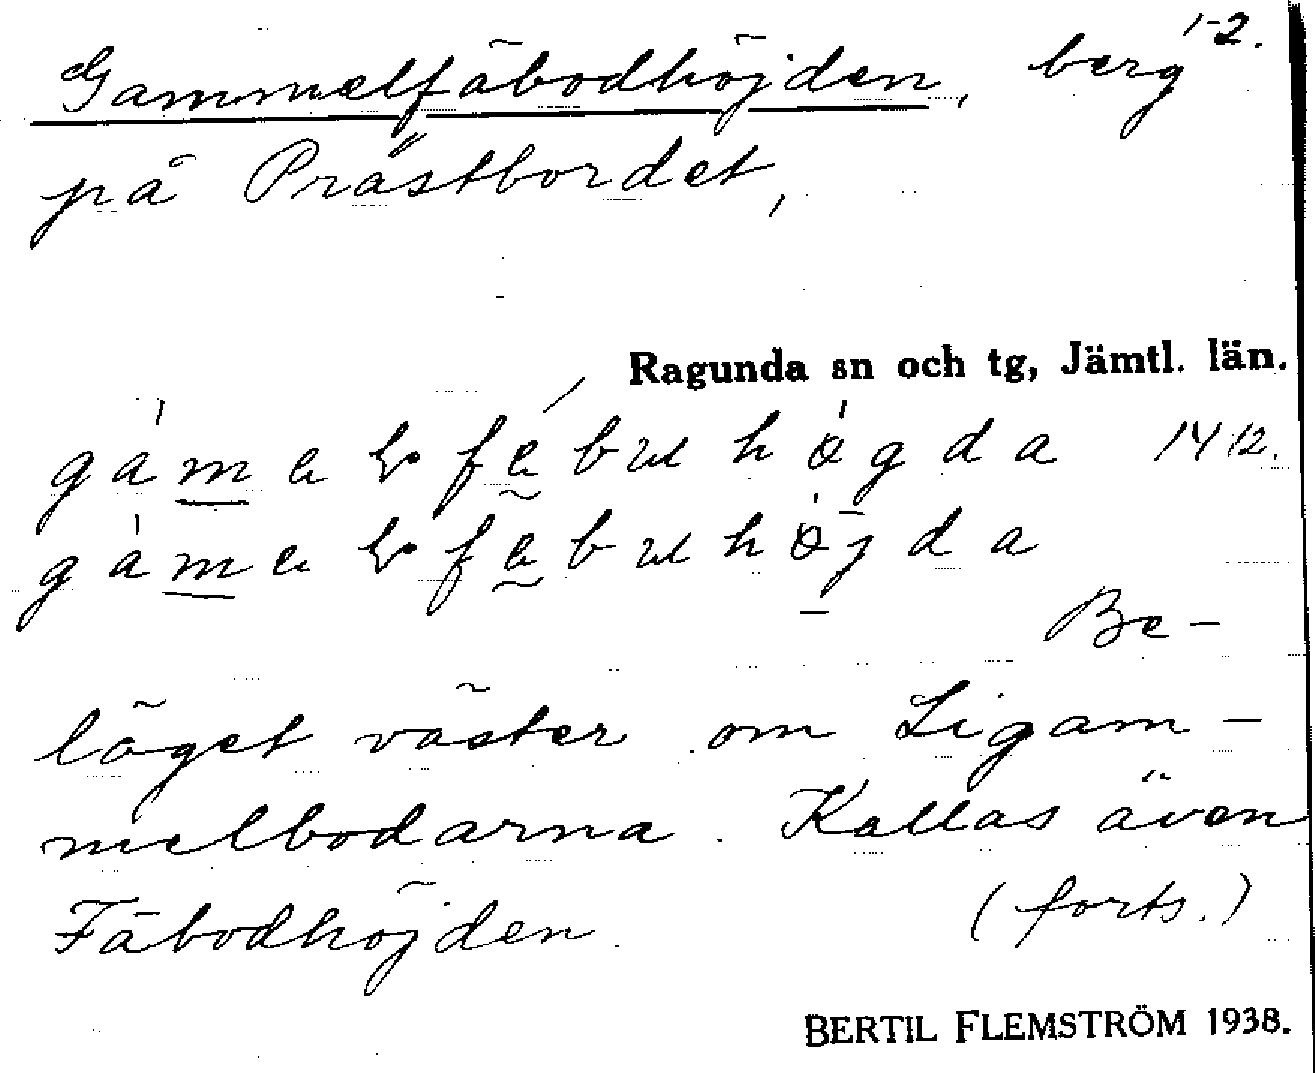 1-2.
Gammelfäbodhöjden, berg
på Prästbordet,
Ragunda sn och tg, Jämtl. län.
1412.
Be-
läget väster om Ligam-
melbodarna. Kallas även
Fäbodhöjden. (forts.)
BERTIL FLEMSTRÖM 1938.